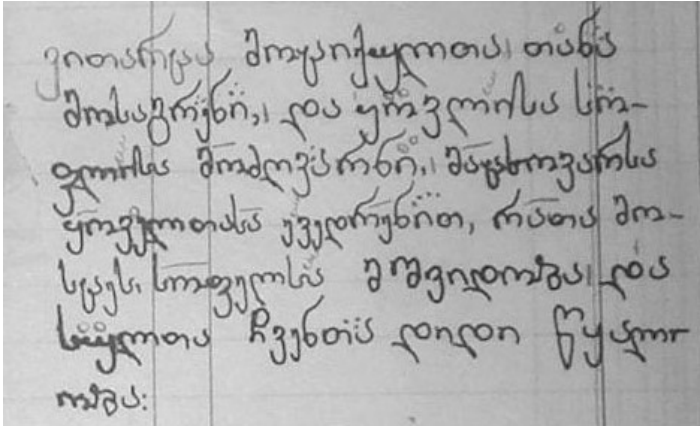 ვითარცა მოციქულთა თანა
მოსაგრენი, და ყოვლისა სო-
ფლისა მოძღვარნი, მაცხოვარსა
ყოველთასა ევედრენით, რათა მო-
სცეს სოფელსა მშვიდობა და
სულთა ჩვენთა დიდი წყალო
ობა: